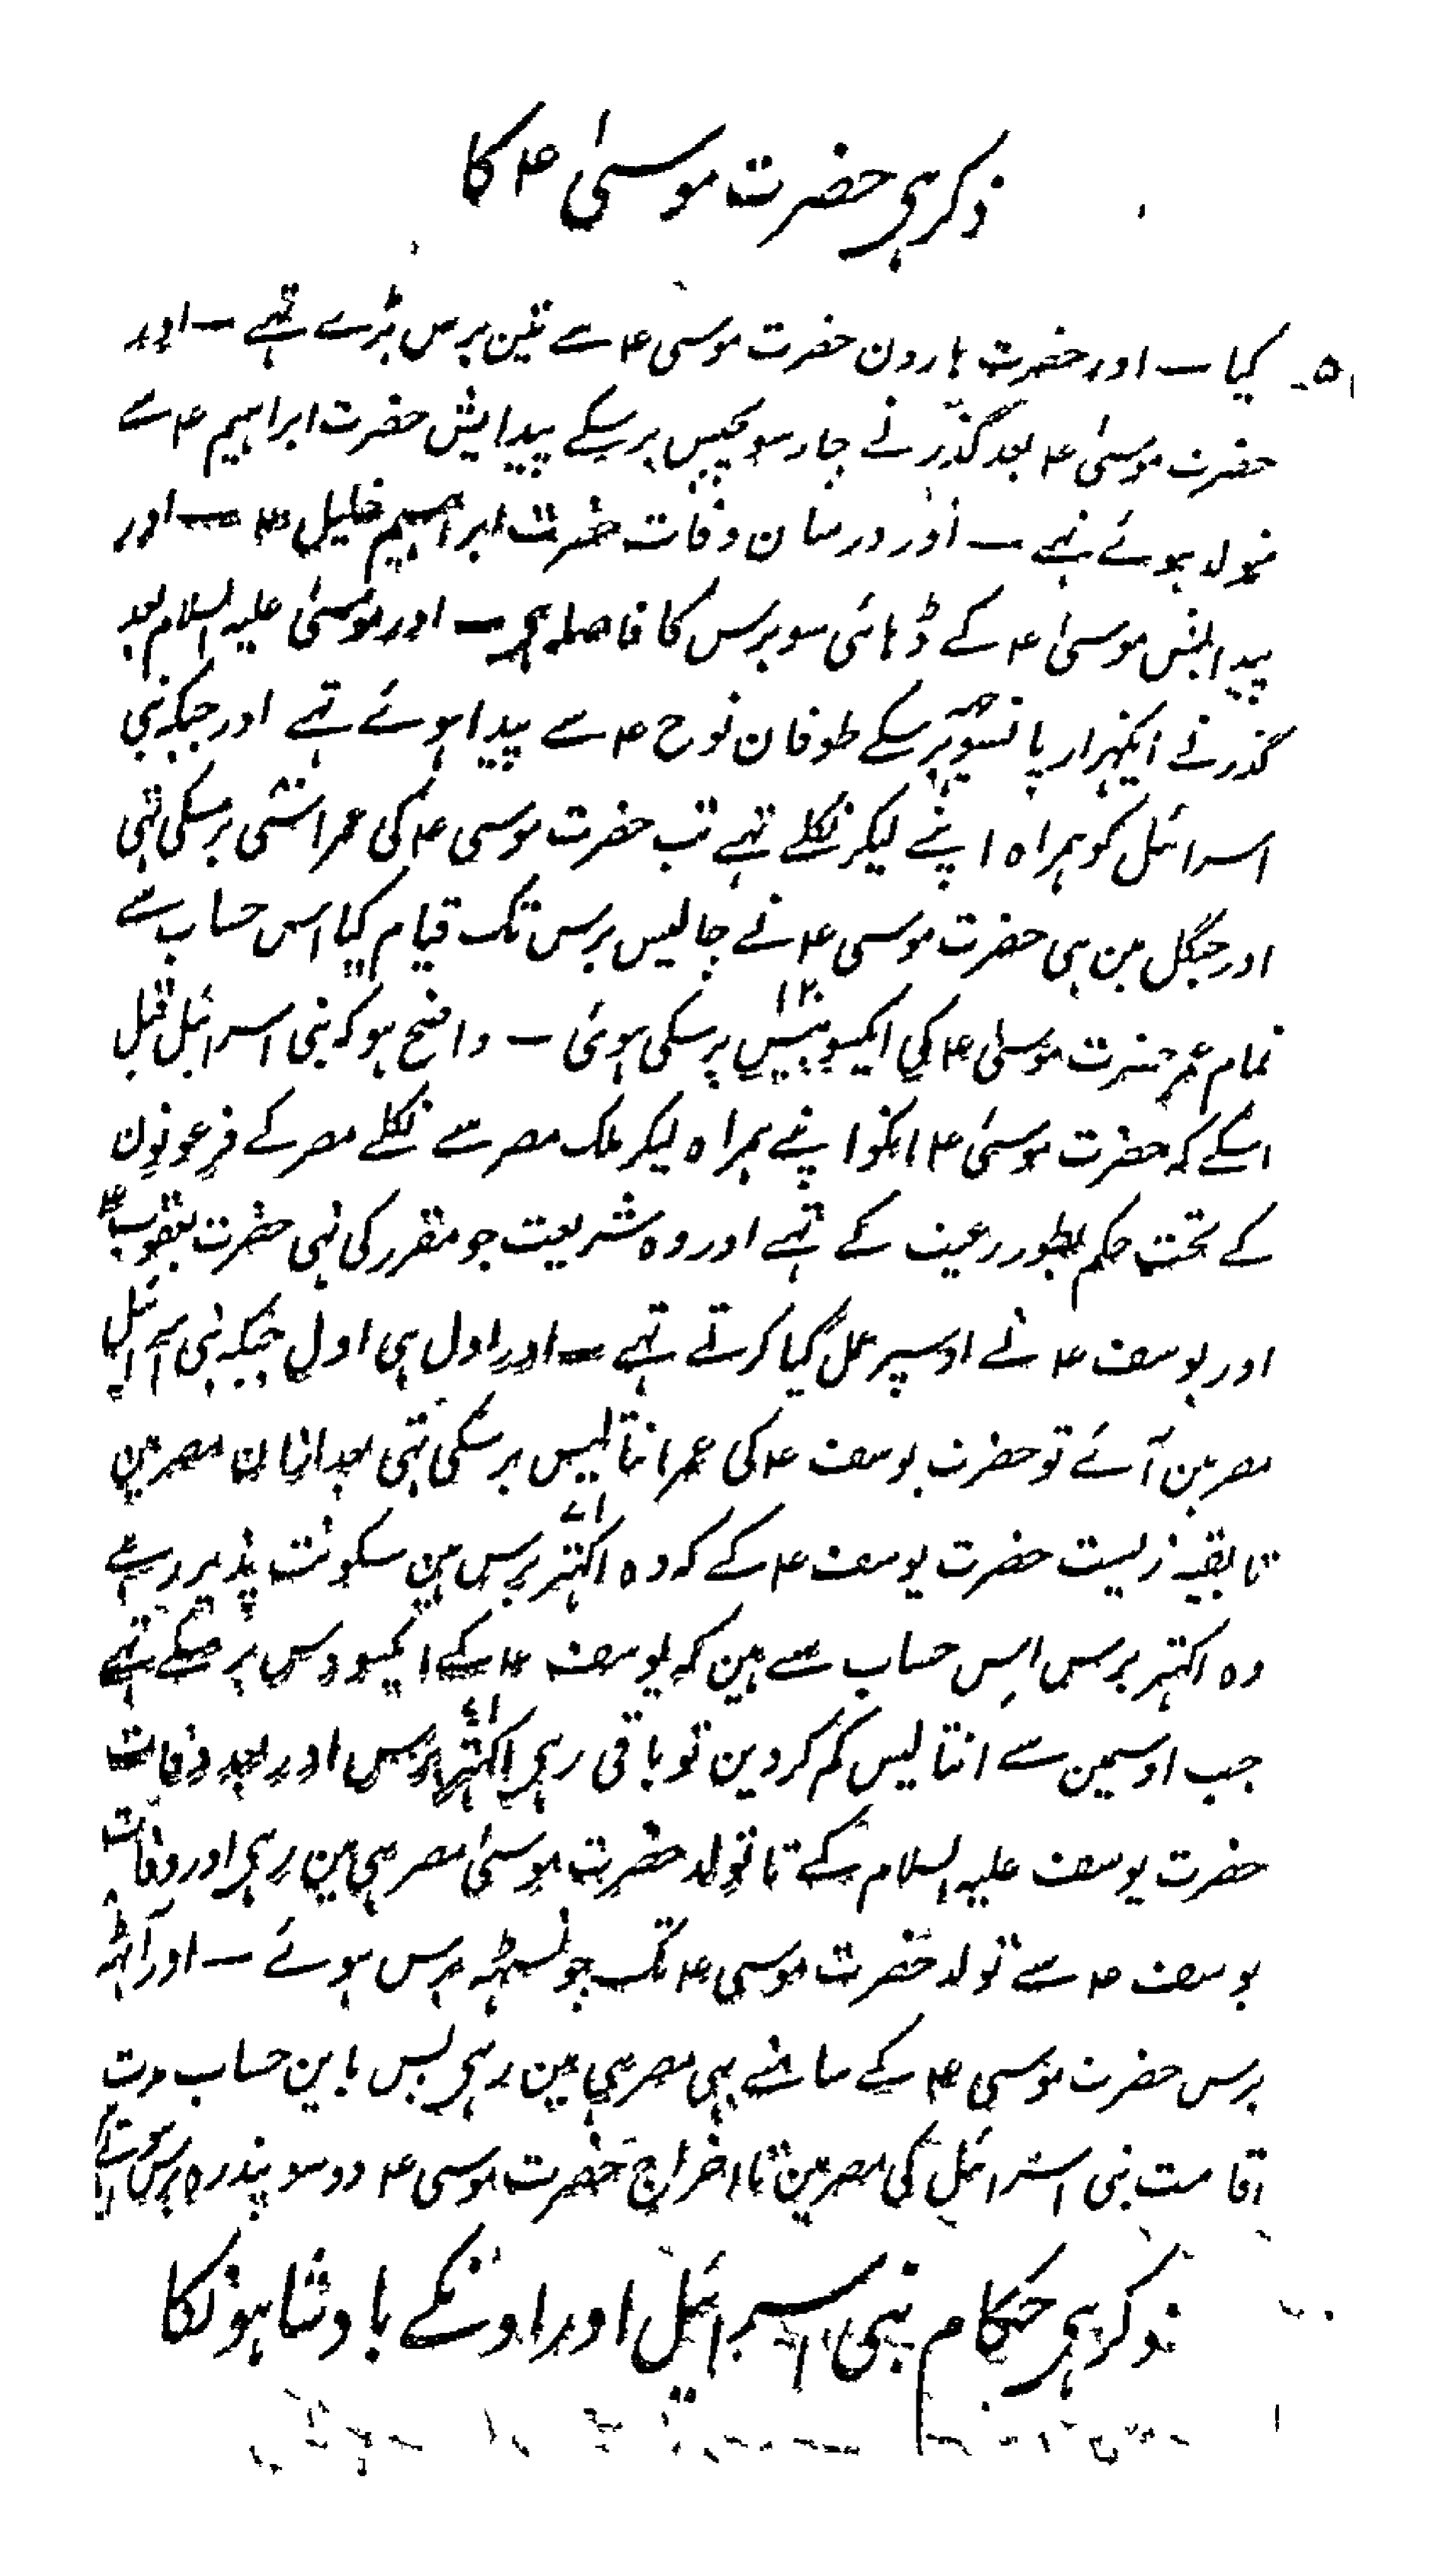 ذکر ہی حضرت موسیٰ ۴ کا
۵۔ کیا ۔ اور حضرت ہارون حضرت موسی ۴ سے تین برس بڑے تہے ۔ اور
حضرت موسیٰ ۴ بعد گذرنے چار سو پچیس برسکے پیدایش حضرت ابراہیم ۴ سے
متولد ہوئے تہے ۔ اور درمیان وفات حضرت ابراہیم خلیل ۴ ۔ اور
پیدایش موسیٰ ۴ کے ڈہائی سو برس کا فاصلہ ہی ۔ اور موسیٰ علیہ السلام بعد
گذرنے ایکہزار پانسو برسکے طوفان نوح ۴ سے پیدا ہوئے تہے اور جبکہ بنی
اسرائیل کو ہمراہ اپنے لیکر نکلے تہے تب حضرت موسی ۴ کی عمر اسّی برسکی تہی
اور جنگل مین بہی حضرت موسی ۴ نے چالیس برس تک قیام کیا اس حساب سے
تمام عمر حضرت موسیٰ ۴ کی ایکسو بیس ۱۲۰ برسکی ہوئی ۔ واضح ہو کہ بنی اسرائیل قبل
اسکے کہ حضرت موسیٰ ۴ انکو اپنے ہمراہ لیکر ملک مصر سے نکلے مصر کے فرعونون
کے تحت حکم بطور رعیت کے تہے اور وہ شریعت جو مقرر کی تہی حضرت یعقوب ۴
اور یوسف ۴ نے اوسپر عمل کیا کرتے تہے ۔ اور اول ہی اول جبکہ بنی اسرائیل
مصر مین آئے تو حضرت یوسف ۴ کی عمر انتالیس برسکی تہی بعد اتیان مصر مین
تا بقیہ زیست حضرت یوسف ۴ کے کہ وہ اکہتر ۷۱ برس ہین سکونت پذیر رہے
وہ اکہتر برس اس حساب سے ہین کہ یوسف ۴ کے ایکسو دس برسکے تہے
جب اوسمین سے انتالیس کم کردین تو باقی رہی اکہتر ۷۱ برس اور بعد وفات
حضرت یوسف علیہ السلام کے تا تولد حضرت موسیٰ مصر ہی مین رہی اور وفات
یوسف ۴ سے تولد حضرت موسی ۴ تک چونسہٹہ برس ہوئے ۔ اور
برس حضرت موسی ۴ کے سامنے بہی مصر ہی مین رہی پس باین حساب مدت
اقامت بنی اسرائیل کی مصر مین تا اخراج حضرت موسی ۴ دو سو پندرہ برس
ذکر ہی حکام بنی اسرائیل اور اونکے بادشاہونکا